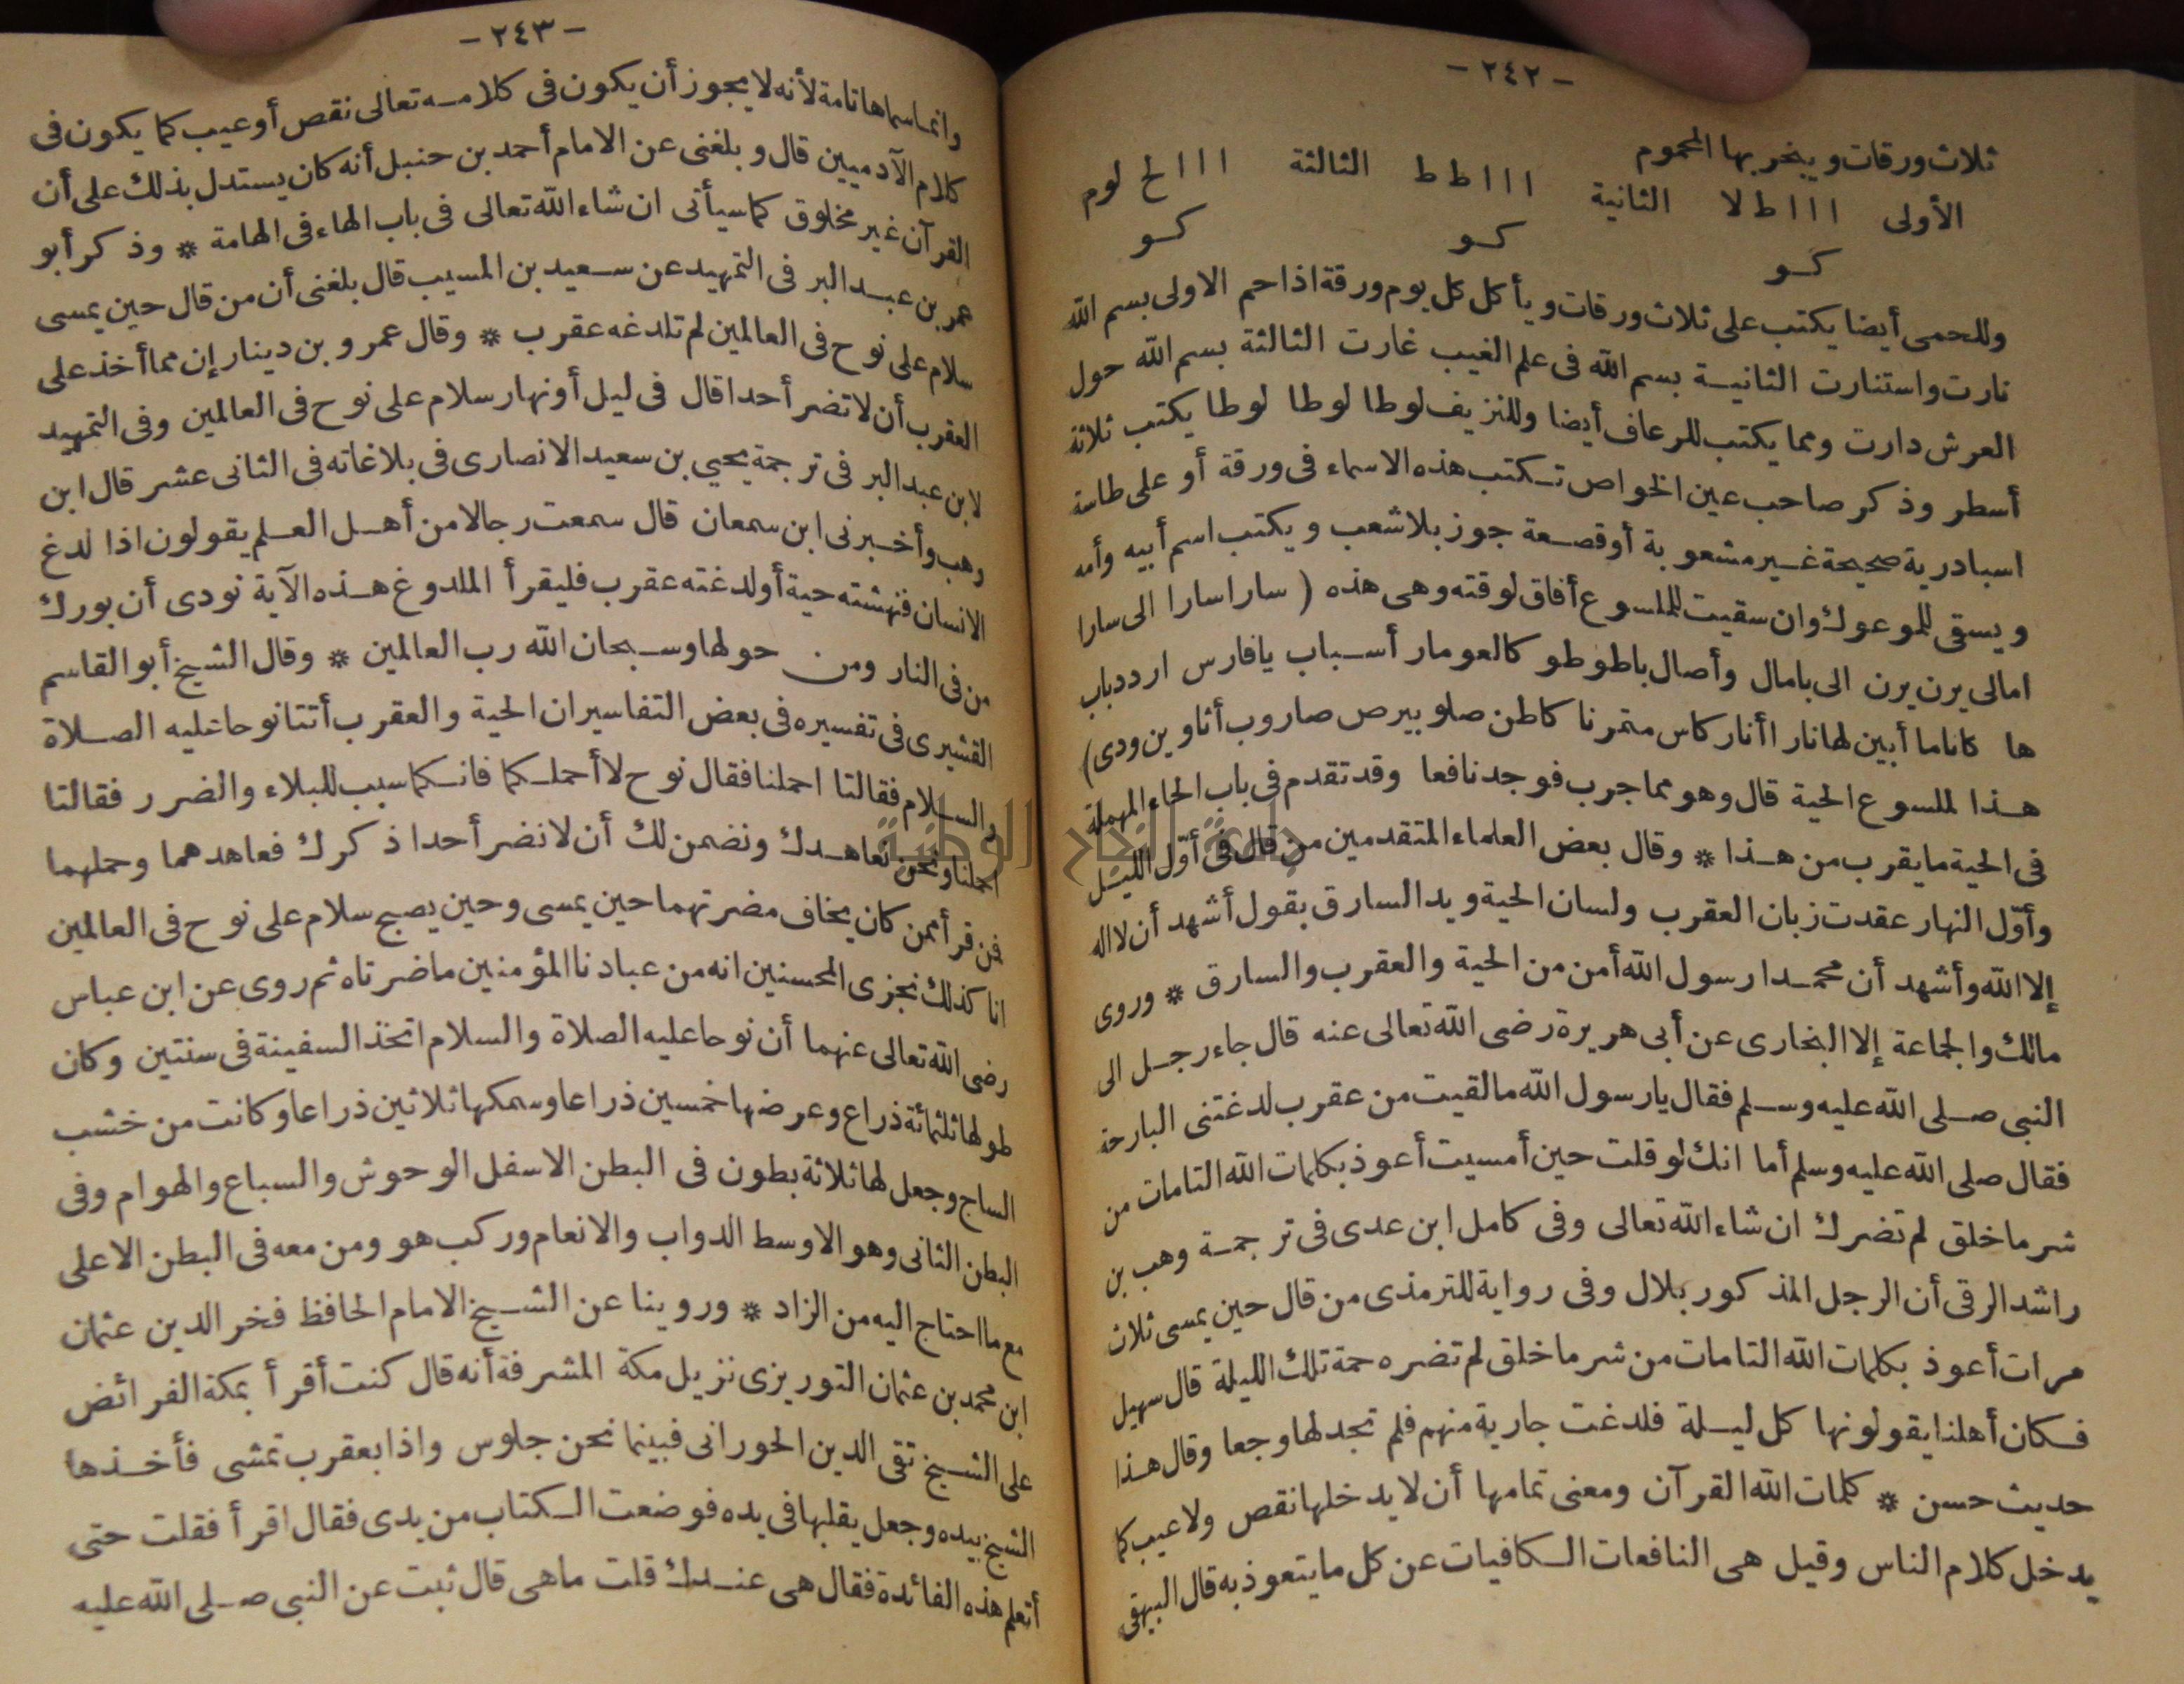 - ٢٤٢ -
ثلاث ورقات ويبخر بها المحموم
الأولى ا ا ا ط لا الثانية ا ا ا ط ط الثالثة ا ا ا لح لوم
كو كو كو
وللحمى أيضا يكتب على ثلاث ورقات ويأكل كل يوم ورقة اذا حم الاولى بسم الله
نارت واستنارت الثانية بسم الله فى علم الغيب غارت الثالثة بسم الله حول
العرش دارت ومما يكتب للرعاف أيضا وللنزيف لوطا لوطا لوطا يكتب ثلاثة
أسطر وذكر صاحب عين الخواص تكتب هذه الاسماء فى ورقة أو على طاسة
اسبادرية صحيحة غير مشعوبة أوقصعة جوز بلا شعب ويكتب اسم أبيه وأمه
ويسقى للموعوك وان سقيت للملسوع أفاق لوقته وهى هذه ( سارا سارا الى سارا
امالى يرن يرن الى بامال وأصال باطوطو كالعو مار أسباب يافارس اردد باب
ها كاناما أبين لها نارا أنار كاس متمرنا كاطن صلو بيرص صاروب أناوين ودى)
هذا لملسوع الحية قال وهو مما جرب فوجد نافعا وقد تقدم فى باب الحاء المهملة
فى الحية ما يقرب من هذا * وقال بعض العلماء المتقدمين من قال فى أول الليل
وأول النهار عقدت زبان العقرب ولسان الحية ويد السارق بقول أشهد أن لا اله
إلا الله وأشهد أن محمدا رسول الله أمن من الحية والعقرب والسارق * وروى
مالك والجماعة إلا البخارى عن أبى هريرة رضى الله تعالى عنه قال جاء رجل الى
النبى صلى الله عليه وسلم فقال يا رسول الله ما لقيت من عقرب لدغتنى البارحة
فقال صلى الله عليه وسلم أما انك لو قلت حين أمسيت أعوذ بكلمات الله التامات من
شر ما خلق لم تضرك ان شاء الله تعالى وفى كامل ابن عدى فى ترجمة وهب بن
راشد الرقى أن الرجل المذكور بلال وفى رواية للترمذى من قال حين يمسى ثلاث
مرات أعوذ بكلمات الله التامات من شر ما خلق لم تضره حمة تلك الليلة قال سهيل
فكان أهلنا يقولونها كل ليلة فلدغت جارية منهم فلم تجد لها وجعا وقال هذا
حديث حسن * كلمات الله القرآن ومعنى تمامها أن لا يدخلها نقص ولا عيب كما
يدخل كلام الناس وقيل هى النافعات الكافيات عن كل ما يتعوذ به قال البيهقى
- ٢٤٣ -
وانما سماها تامة لأنه لا يجوز أن يكون فى كلامه تعالى نقص أو عيب كما يكون فى
كلام الآدميين قال وبلغنى عن الامام أحمد بن حنبل أنه كان يستدل بذلك على أن
القرآن غير مخلوق كما سيأتى ان شاء الله تعالى فى باب الهاء فى الهامة * وذكر أبو
عمر بن عبد البر فى التمهيد عن سعيد بن المسيب قال بلغنى أن من قال حين يمسى
سلام على نوح فى العالمين لم تلدغه عقرب * وقال عمرو بن دينار إن مما أخذ على
العقرب أن لا تضر أحدا قال فى ليل أو نهار سلام على نوح فى العالمين وفى التمهيد
لابن عبد البر فى ترجمة يحيى بن سعيد الانصارى فى بلاغاته فى الثانى عشر قال ابن
وهب وأخبرنى ابن سمعان قال سمعت رجالا من أهل العلم يقولون اذا لدغ
الانسان فنهشته حية أو لدغته عقرب فليقرأ الملدوغ هذه الآية نودى أن بورك
من فى النار ومن حولها وسبحان الله رب العالمين * وقال الشيخ أبو القاسم
القشيرى فى تفسيره فى بعض التفاسير ان الحية والعقرب أتتا نوحا عليه الصلاة
والسلام فقالتا احملنا فقال نوح لا أحملكما فانكما سبب للبلاء والضرر فقالتا
احملنا ونحن نعاهدك ونضمن لك أن لا نضر أحدا ذكرك فعاهدهما وحملهما
فمن قرأ ممن كان يخاف مضرتهما حين يمسى وحين يصبح سلام على نوح فى العالمين
انا كذلك نجزى المحسنين انه من عبادنا المؤمنين ما ضرتاه ثم روى عن ابن عباس
رضى الله تعالى عنهما أن نوحا عليه الصلاة والسلام اتخذ السفينة فى سنتين وكان
طولها ثلثمائة ذراع وعرضها خمسين ذراعا وسمكها ثلاثين ذراعا وكانت من خشب
الساج وجعل لها ثلاثة بطون فى البطن الاسفل الوحوش والسباع والهوام وفى
البطن الثانى وهو الاوسط الدواب والانعام وركب هو ومن معه فى البطن الاعلى
مع ما احتاج اليه من الزاد * وروينا عن الشيخ الامام الحافظ فخر الدين عثمان
ابن محمد بن عثمان التوريزى نزيل مكة المشرفة أنه قال كنت أقرأ بمكة الفرائض
على الشيخ تقى الدين الحورانى فبينما نحن جلوس واذا بعقرب تمشى فأخذها
الشيخ بيده وجعل يقلبها فى يده فوضعت الكتاب من يدى فقال اقرأ فقلت حتى
أتعلم هذه الفائدة فقال هى عندك قلت ما هى قال ثبت عن النبى صلى الله عليه
جامعة النجاح الوطنية